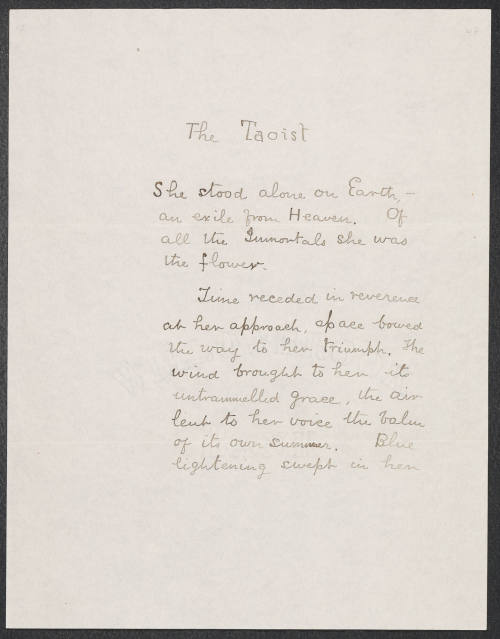 The Taoist
She stood alone on Earth, –
an exile from Heaven. Of
all the Immortals she was
the flower.
Time receded in reverence
at her approach, space bowed
the way to her triumph. The
wind brought to her its
untrammelled grace, the air
lent to her voice the balm
of its own summer. Blue
lightening swept in her